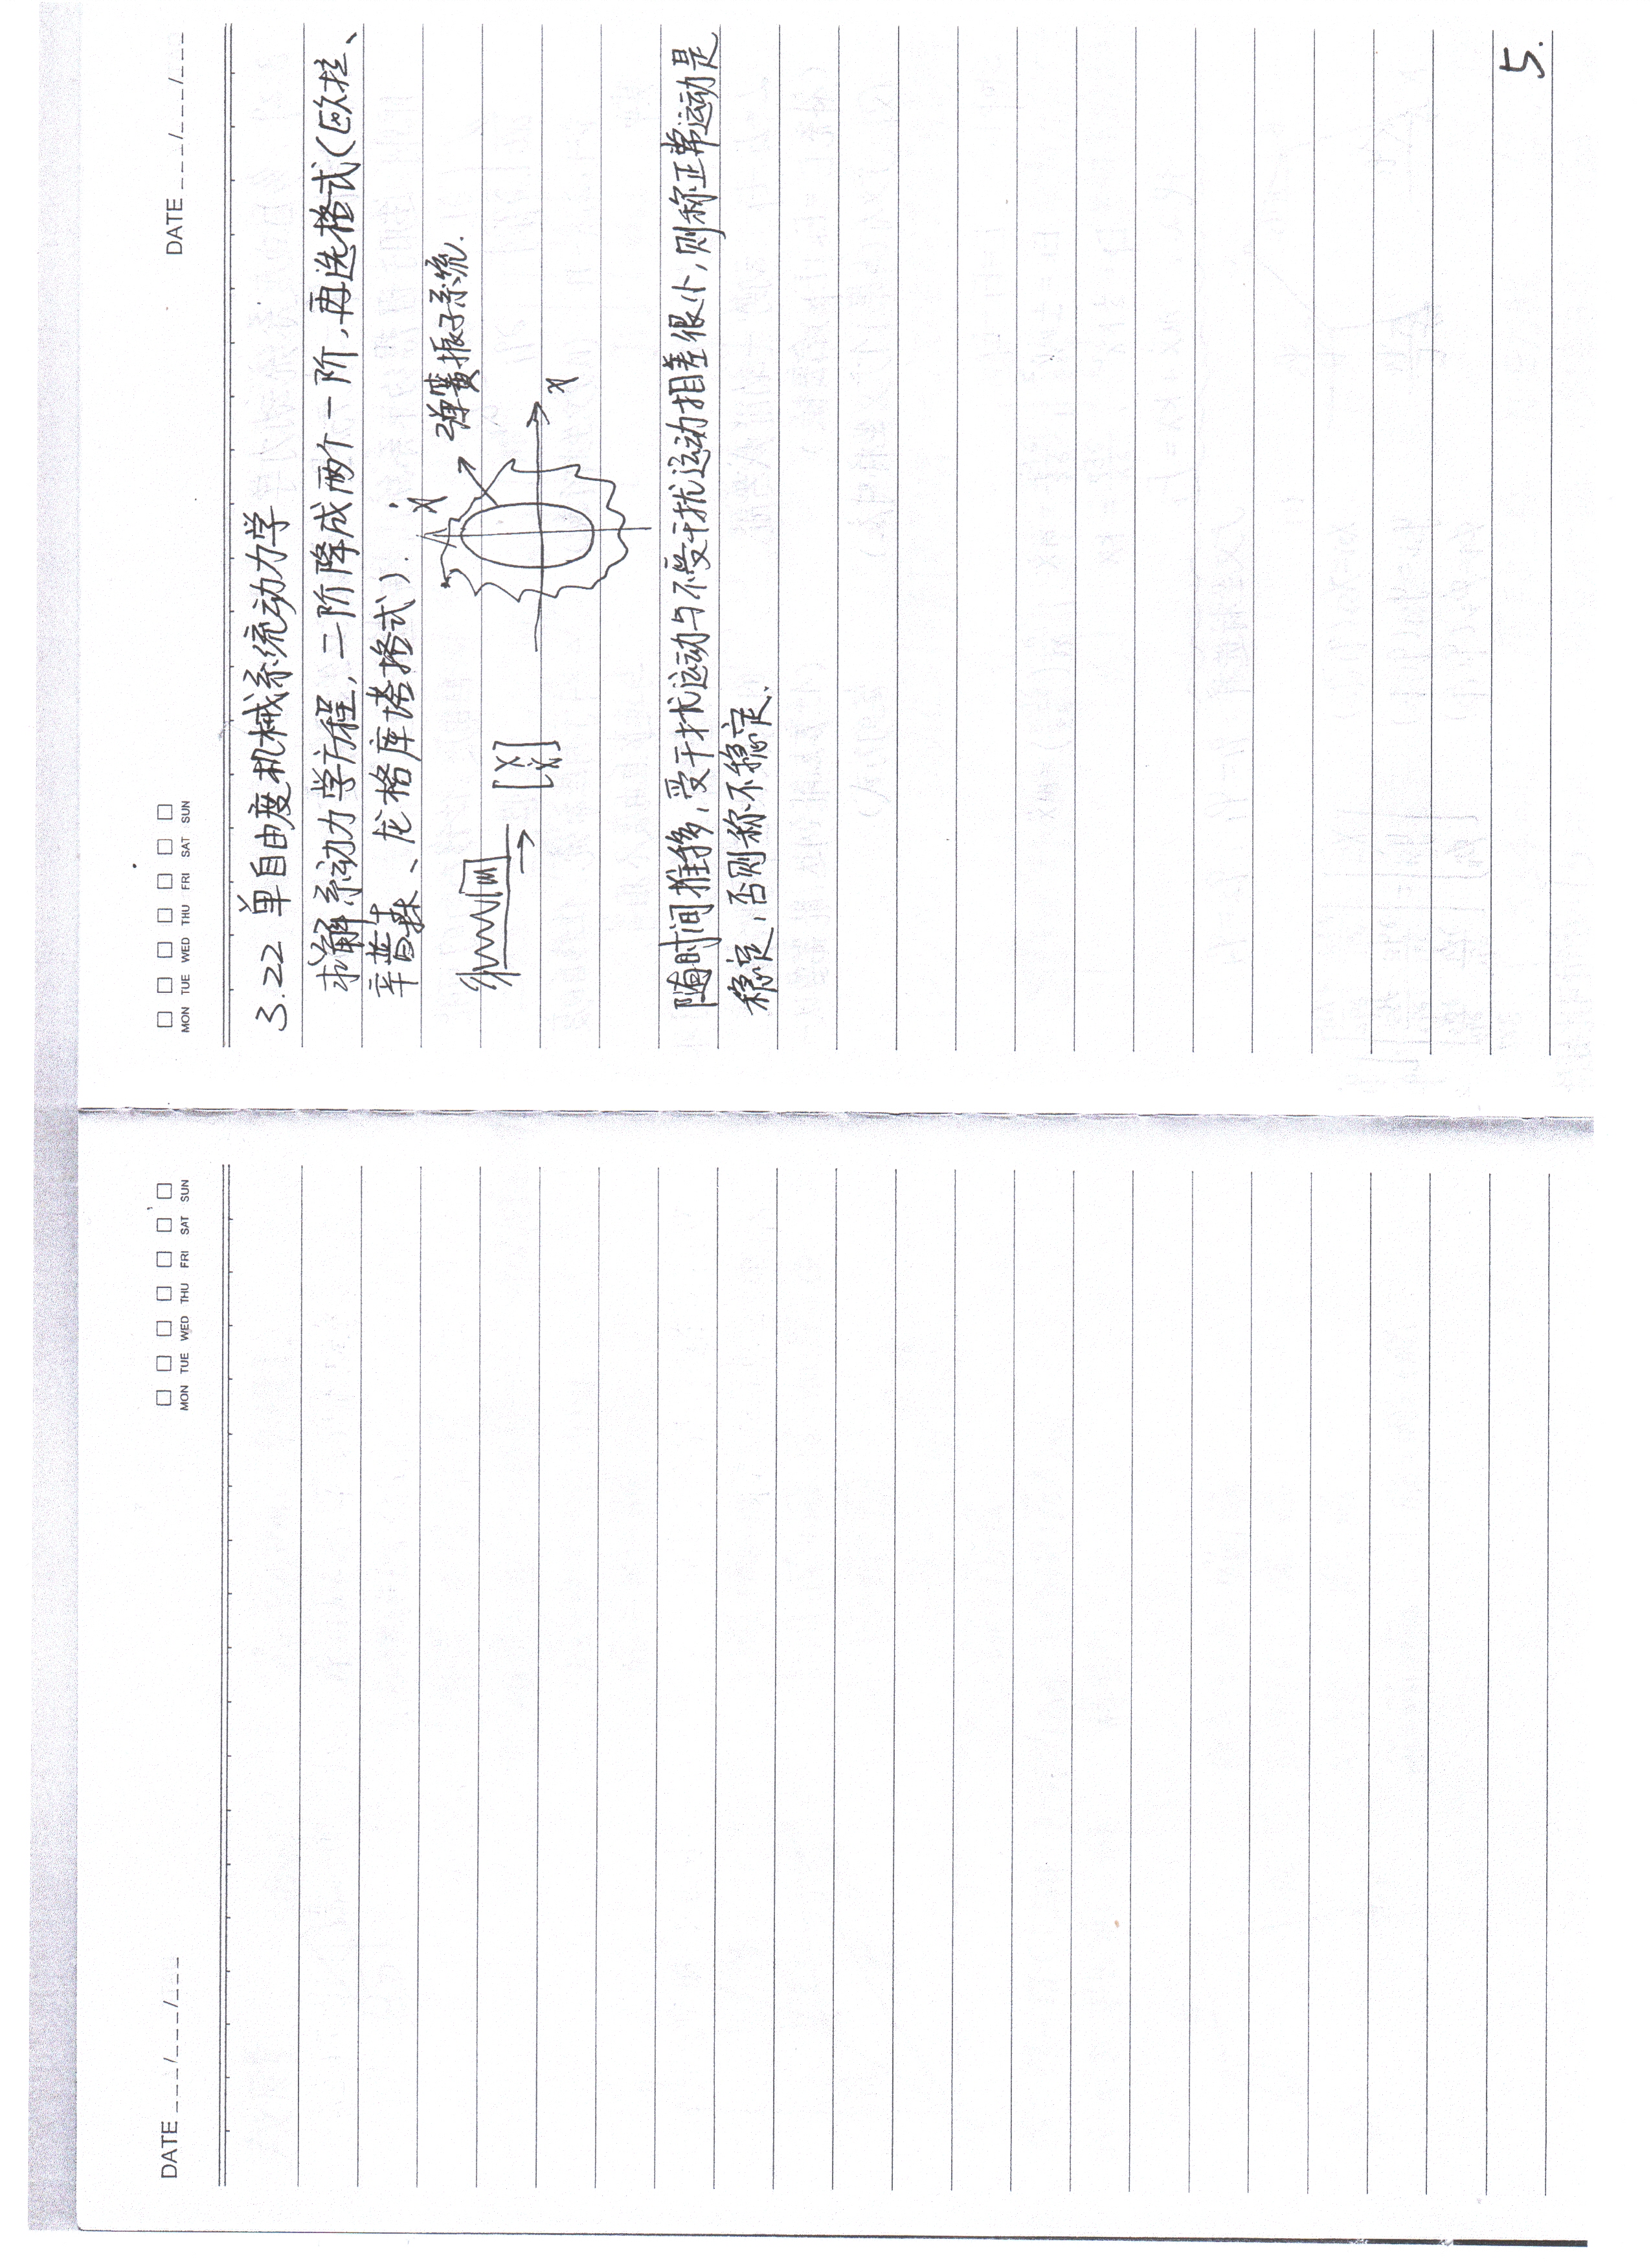 MON TUE WED THU FRI SAT SUN
DATE ___/___/___
3.22 单自由度机械系统动力学
求解系动力学方程,二阶降成两个一阶,再选格式(欧拉、
辛普森、龙格库塔格式).
ẋ 弹簧振子系统.
m [x ẋ] x
随时间推移,受干扰运动与不受干扰运动相差很小,则称正常运动是
稳定,否则称不稳定.
5.
DATE ___/___/___
MON TUE WED THU FRI SAT SUN